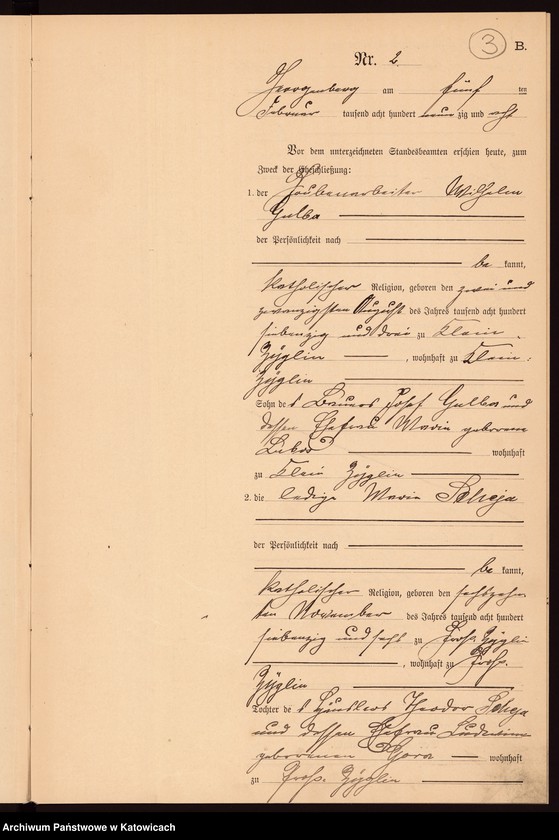 3
B.
Nr. 2.
Georgenberg am fünf ten
Februar tausend acht hundert neun zig und acht
Vor dem unterzeichneten Standesbeamten erschien heute, zum
Zweck der Eheschließung:
1. der Grubenarbeiter Wilhelm
Gulba
der Persönlichkeit nach
be kannt,
katholischer Religion, geboren den zwei und
zwanzigsten August des Jahres tausend acht hundert
siebenzig und drei zu Klein
Zyglin , wohnhaft zu Klein
Zyglin
Sohn des Bauers Josef Gulba und
dessen Ehefrau Maria geborene
wohnhaft
zu Klein Zyglin
2. die ledige Maria Scheja
der Persönlichkeit nach
be kannt,
katholischer Religion, geboren den sechszehn
ten November des Jahres tausend acht hundert
siebenzig und sechs zu Groß Zyglin
, wohnhaft zu Groß
Zyglin
Tochter des Häuslers Theodor Scheja
und dessen Ehefrau
geborenen Gora wohnhaft
zu Groß Zyglin
Archiwum Państwowe w Katowicach